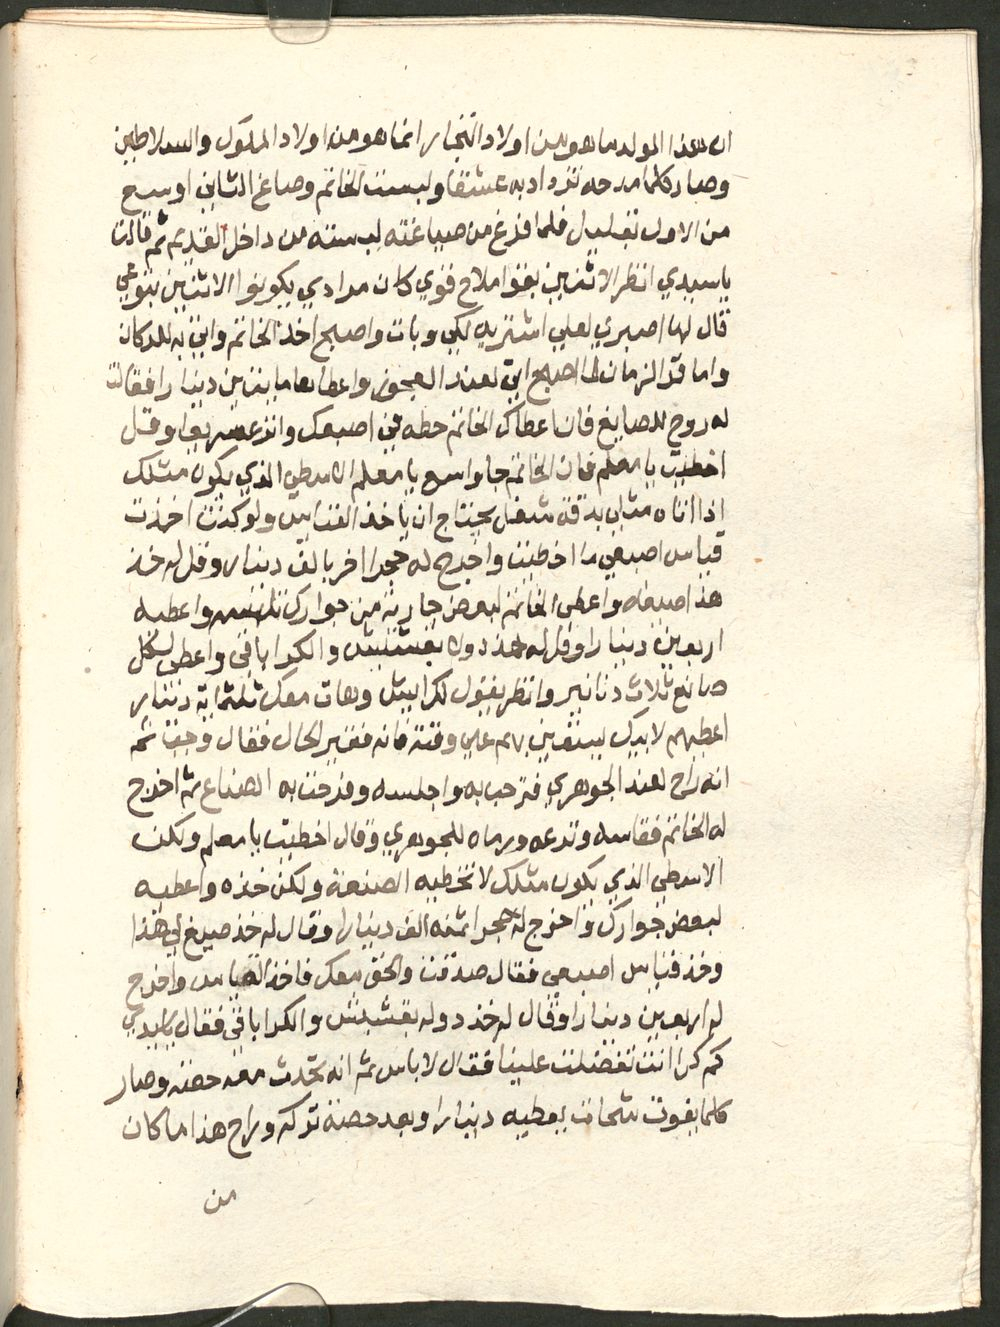 ان هذا الولد ما هو من اولاد التجار انما هو من اولاد الملوك والسلاطين
وصار كلما مدحه تزداد به عشقا ولبست الخاتم وصاغ الثاني اوسع
من الاول بقليل فلما افرغ من صياغته لبسته من داخل القديم ثم قالت
ياسيدي انظر الاثنين بقوا ملاح قوي كان مرادي يكونوا الاثنين بتوعي
قال لها اصبري لعلي اشتريه لكي وبات واصبح اخذ الخاتم واتى به للدكان
واما قمر الزمان لما اصبح اتى لعند العجوز واعطاها مايتين دينارا فقالت
له روح للصايغ فان اعطاك الخاتم حطه في اصبعك وانزعه سريعا وقل
اخطيت يا معلم فان الخاتم جا واسع يا معلم الاسطي الذي يكون مثلك
اذا اتاه مثلي بدقة شغل يحتاج ان ياخذ القياس ولو كنت اخذت
قياس اصبعي ما اخطيت واخرج له حجرا اخر بالف دينار وقل له خذ
هذا صيغه واعطي الخاتم لبعض جارية من جوارك تلبسه واعطيه
اربعين دينارا وقل له خذ دوله بقشيش والكرا باقي واعطى لكل
صانع ثلاث دنانير وانظر يقول لك ايش وهات معك ثلثماية دينار
اعطيهم لابيك يستعين بهم علي وقته فانه فقير الحال فقال وجب ثم
انه راح لعند الجوهري فترحب به واجلسه وفرحت به الصناع ثم اخرج
له الخاتم فقاسه ونزعه ورماه للجوهري وقال اخطيت يا معلم ولكن
الاسطي الذي يكون مثلك لا تخطيه الصنعة ولكن خذه واعطيه
لبعض جوارك واخرج له حجرا ثمنه الف دينار وقال له خذ صيغ لي هذا
وخذ قياس اصبعي فقال صدقت والحق معك فاخذ القياس واخرج
له اربعين دينارا وقال له خذ دوله بقشيش والكرا باقي فقال ياسيدي
كم كرا انت تفضلت علينا فقال لا باس ثم انه تحدث معه حصة وصار
كلما يفوت شحات يعطيه دينارا وبعد حصة تركه وراح هذا ما كان
من